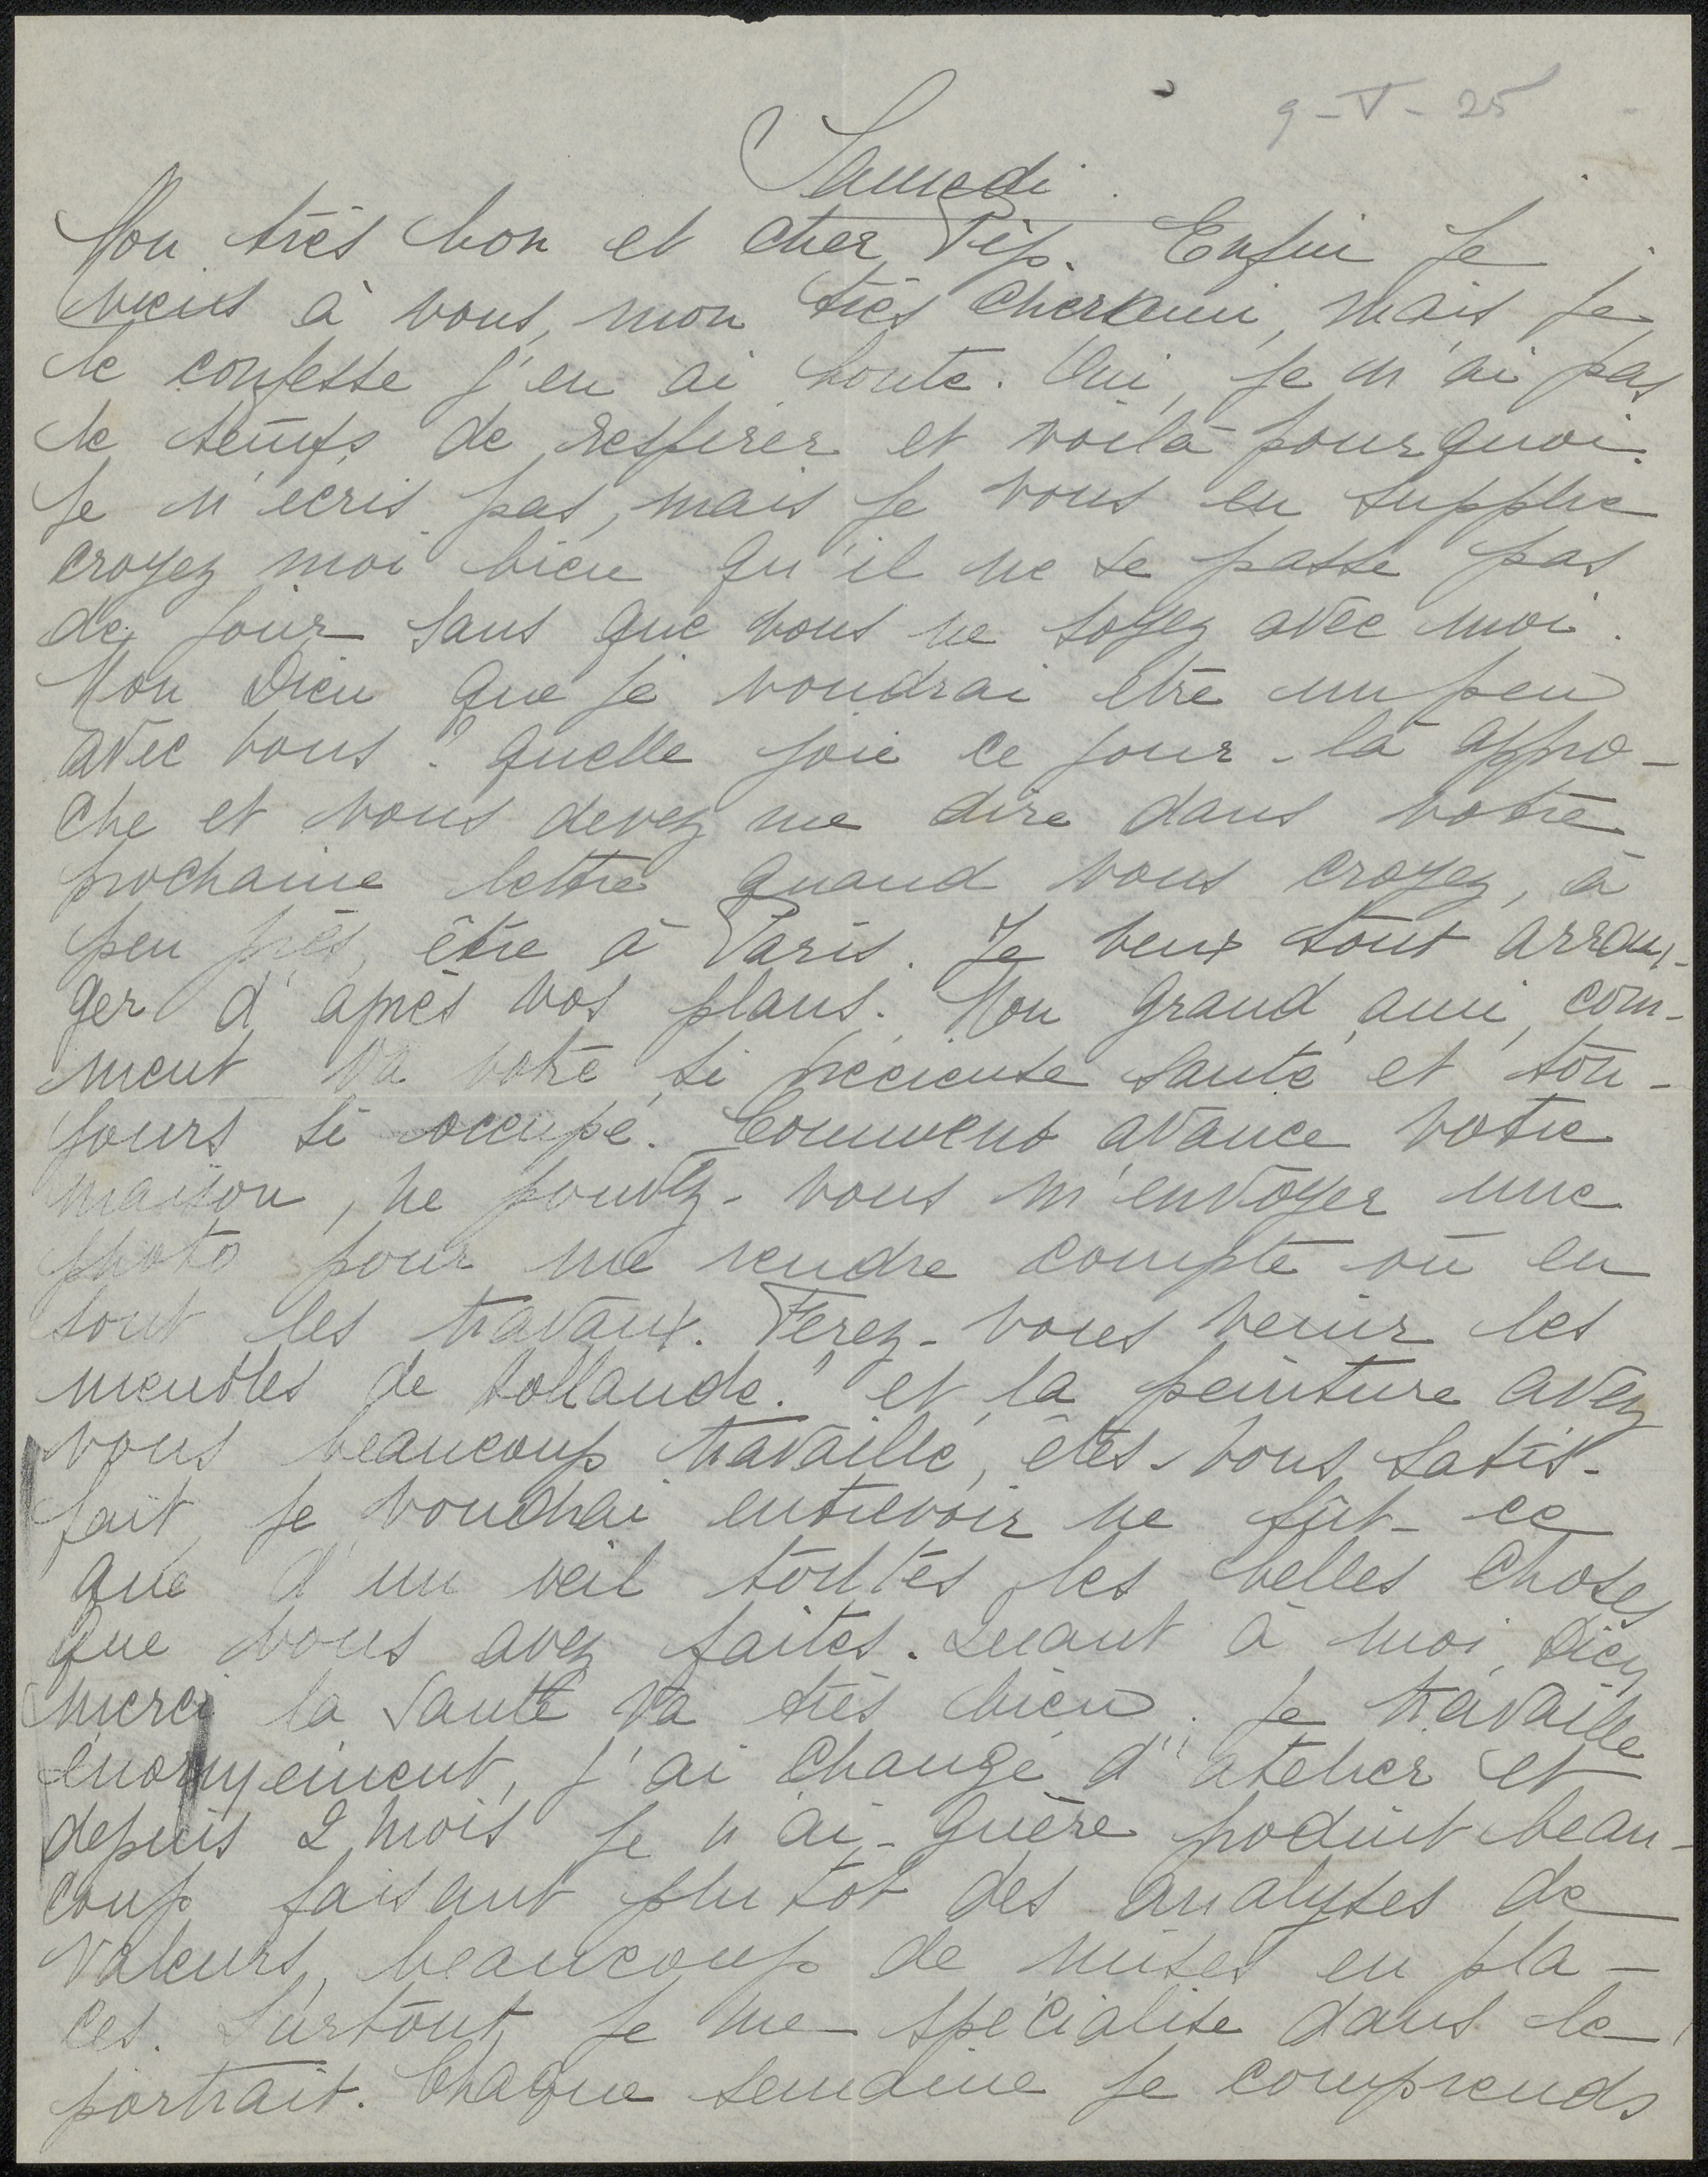 9-V-25
Samedi.
Mon très bon et cher Pip. Enfin je
viens à vous, mon très cher ami, mais je
le confesse j'en ai honte. Oui, je n'ai pas
le temps de respirer et voilà pourquoi
je n'ecris pas, mais je vous en supplie
croyez moi bien qu'il ne se passe pas
de jour sans que vous ne soyez avec moi.
Mon Dieu que je voudrai être un peu
avec vous? quelle joie ce jour-là appro-
che et vous devez me dire dans votre
prochaine lettre quand vous croyez, à
peu près, être à Paris. Je veux tout arran-
ger d'après vos plans. Mon grand ami, com-
ment va votre si précieuse santé et tou-
jours si occupé. Comment avance votre
maison, ne pouvez-vous m'envoyer une
photo pour me rendre compte où en
sont les travaux. Ferez-vous venir les
meubles de Hollande? et la peinture avez
vous beaucoup travaillé, êtes-vous satis-
fait, je voudrai entrevoir ne fût-ce
que d'un œil toutes les belles choses
que vous avez faites. Quant à moi, Dieu
merci la santé va très bien. je travaille
énormément, j'ai changé d'atelier et
depuis 2 mois je n'ai-guère produit beau-
coup faisant plutôt des analyses de
valeurs, beaucoup de mises en pla-
ces. Surtout, je me spécialise dans le
portrait. Chaque semaine je comprends